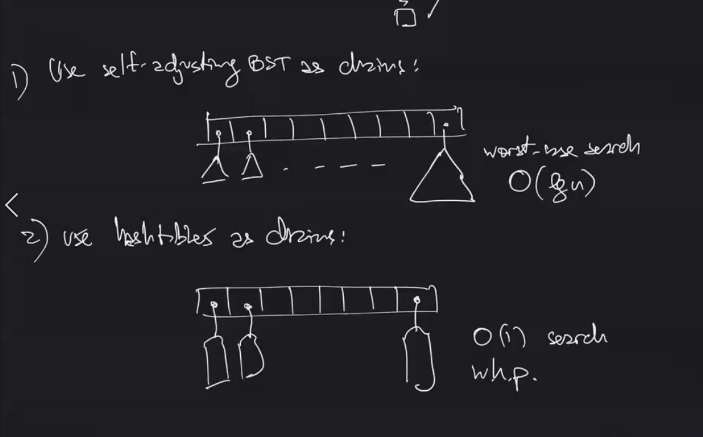 1) Use self-adjusting BST as chains:
worst-case search
O(lg n)
2) use hashtables as chains:
O(1) search
w.h.p.